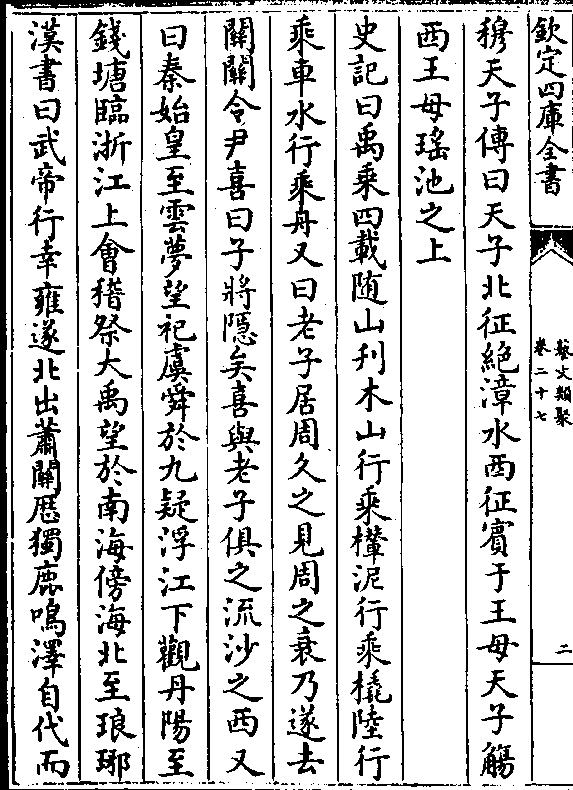 欽定四庫全書
藝文類聚
卷二十七
二
穆天子傳曰天子北征絶漳水西征賓于王母天子觴
西王母瑤池之上
史記曰禹乘四載随山刋木山行乘樏泥行乘橇陸行
乘車水行乘舟又曰老子居周久之見周之衰乃遂去
關關令尹喜曰子將隱矣喜與老子俱之流沙之西又
曰秦始皇至雲夢望祀虞舜於九疑浮江下觀丹陽至
錢塘臨浙江上會稽祭大禹望於南海傍海北至琅琊
漢書曰武帝行幸雍遂北出蕭關歴獨鹿鳴澤自代而